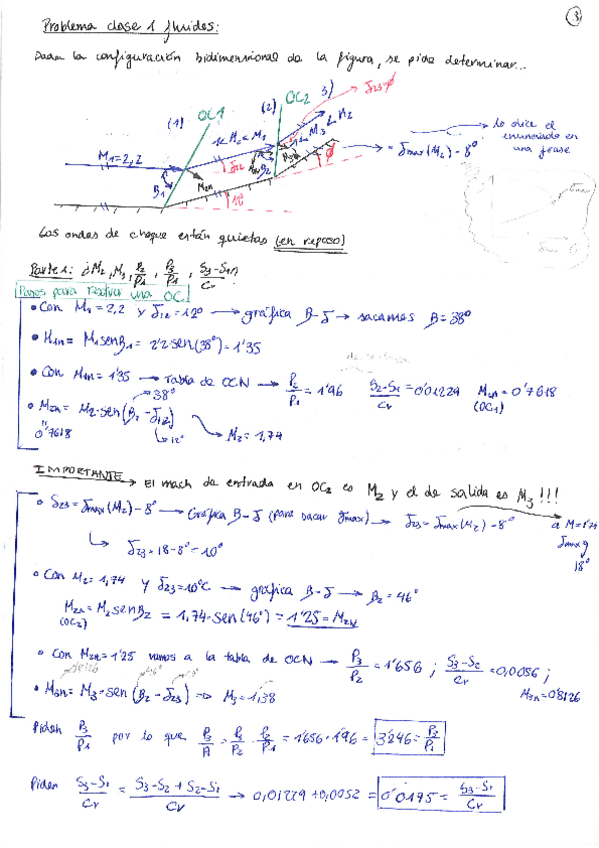 Problema clase 1 fluidos:
3
Dada la configuración bidimensional de la figura, se pide determinar...
(1) OC1 (2) OC2 3) δ23=ϕ
M1=2,2 M2<M1 M3 M2
δ12 B1 M2n B2 ϕ 12°
= δmax(M2) - 8°
lo dice el
enunciado en
una frase
Las ondas de choque están quietas (en reposo)
Parte 1: ¿M2, M3, P2/P1, P3/P1, S3-S1/Cv
Pasos para resolver una OC
• Con M1=2,2 y δ12=12° → gráfica B-δ → sacamos B=38°
• M1n = M1 sen B1 = 2'2 sen(38°) = 1'35
• Con M1n=1'35 → tabla de OCN → P2/P1 = 1'96 S2-S1/Cv = 0'01229 M2n = 0'7618
(OC1)
• M2n = M2·sen(B2-δ12) → M2 = 1,74
38°
0'7618 12°
IMPORTANTE → El mach de entrada en OC2 es M2 y el de salida es M3!!!
• δ23 = δmax(M2) - 8° → Gráfica B-δ (para sacar δmax) → δ23 = δmax(M2) - 8°
a M=1'74
δmax
18°
↳ δ23 = 18-8° = 10°
• Con M2=1,74 y δ23=10°C → gráfica B-δ → B2 = 46°
M2n = M2 sen B2 = 1,74·sen(46°) = 1'25 = M2N
(OC2)
• Con M2n=1'25 vamos a la tabla de OCN → P3/P2 = 1'656 ; S3-S2/Cv = 0,0056 ;
M3n = 0'8126
0'8126 46°
• M3n = M3·sen(B2-δ23) ⇒ M3 = 1,38
Piden P3/P1 por lo que P3/P1 = P3/P2 · P2/P1 = 1'656·1'96 = 3'246 = P3/P1
Piden S3-S1/Cv = S3-S2+S2-S1/Cv → 0,01229+0,0052 = 0'0175 = S3-S1/Cv